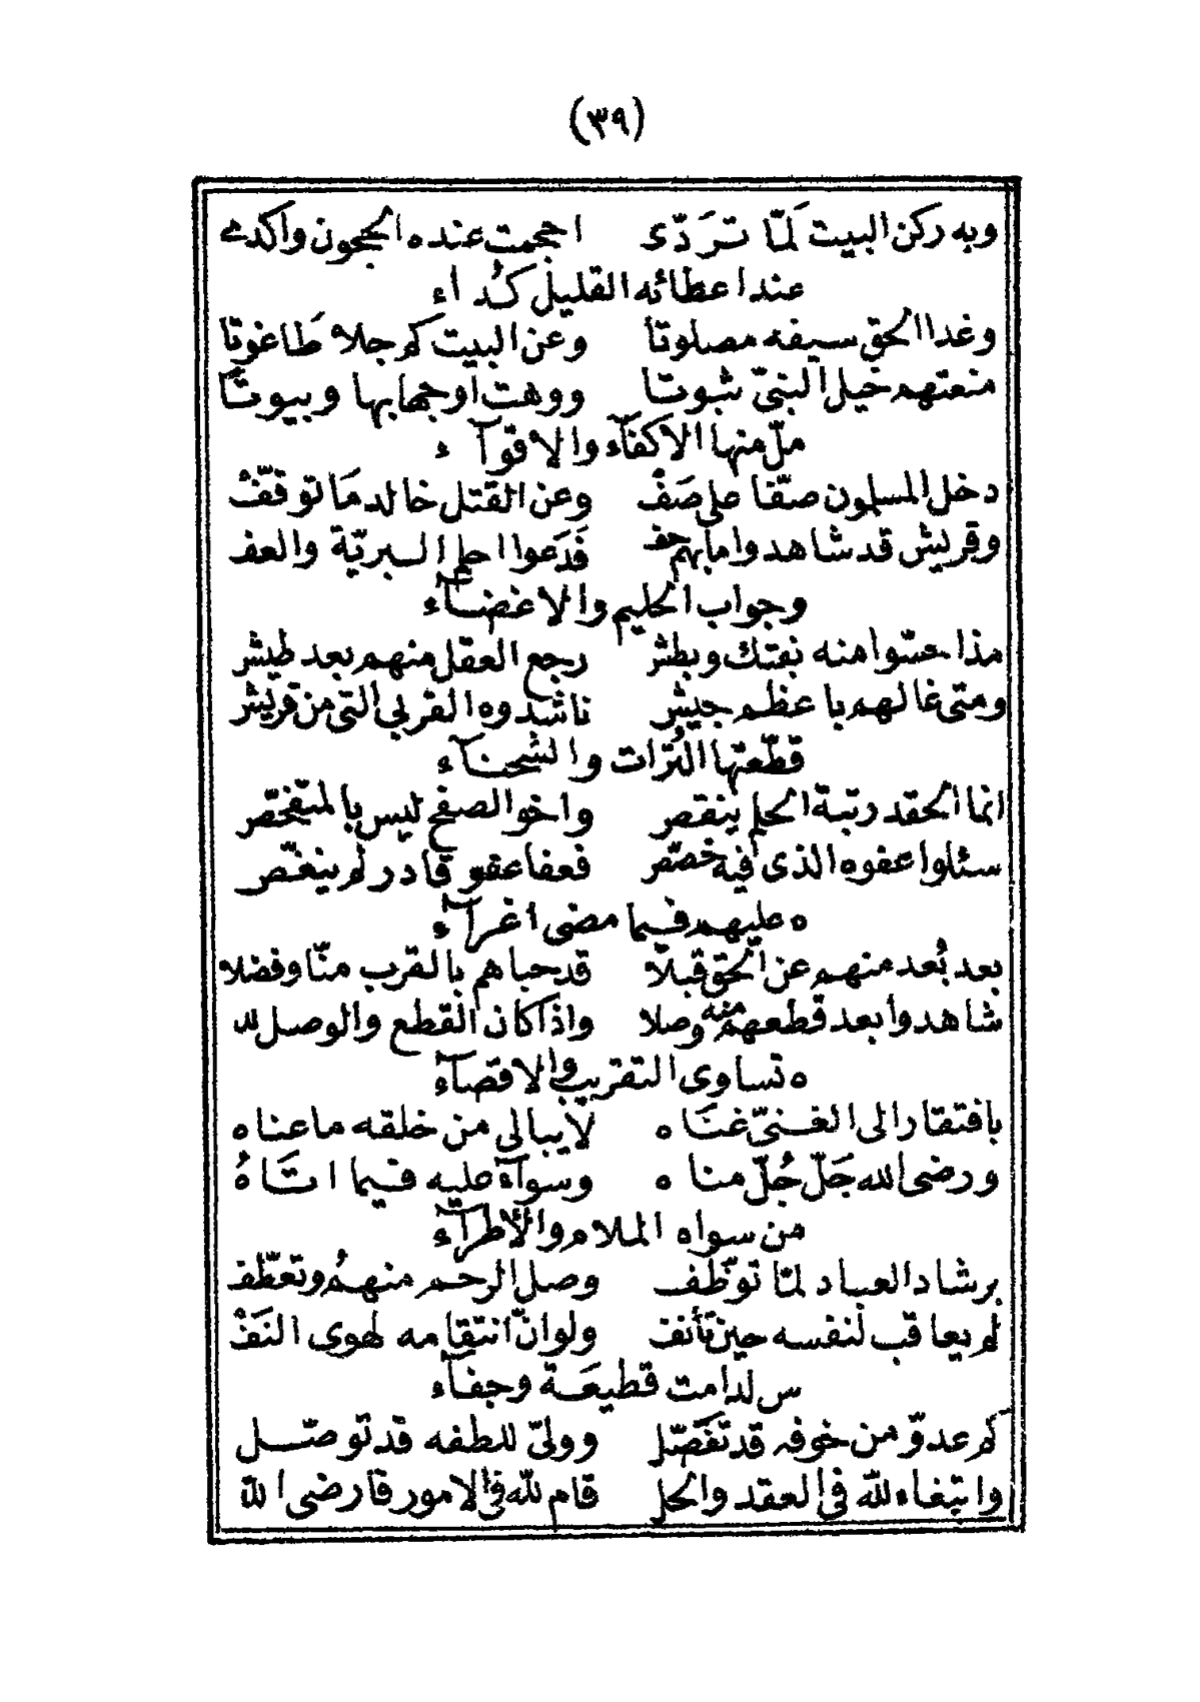 (٣٩)
وبه ركن البيت لَمّا تَرَدّى احجمت عنده الحجون واكدى
عند اعطائه القليل كُداء
وغدا الحق سيفه مصلوتا وعن البيت كم جلا طَاغوتا
منعتهم خيل النبيّ ثبوتا ووهت اوجها بها وبيوتًا
ملّ منها الاكفآء والاقوآء
دخل المسلمون صفّا على صَفْ وعن القتل خالد مَا توقفْ
وقريش قد شاهدوا ما بهم حف فَدَعوا احلم البريّة والعف
وجواب الحليم والاغضآء
مذ احسّوا منه بفتك وبطش رجع العقل منهم بعد طيش
ومتى غالهم باعظم جيش ناشدوه القربى التى من قريش
قطّعتها التُرات والشحنآء
انما الحقد رتبة الحلم ينقص واخو الصفح ليس بالمتفحّص
سئلوا عفوه الذى فيه خصّص فعفا عفو قادر لم ينغّص
ه عليهم فيما مضى اغرآء
بعد بُعد منهم عن الحق قبلا قد حباهم بالقرب منّا وفضلا
شاهدوا بعد قطعهم منه وصلا واذا كان القطع والوصل لله
ه تساوى التقريب والاقصآء
بافتقار الى الغنىّ غنَاه لا يبالى من خلقه ما عناه
ورضى الله جَلّ جُلّ مناه وسوآء عليه فيما اتَاهُ
من سواه الملام والأطرآء
برشاد العباد لمّا توظّف وصل الرحم منهمُ وتعطّف
لم يعاقب لنفسه حين تأنف ولو انّ انتقامه لهوى النَفْ
س لدامت قطيعَة وجفآء
كم عدوّ من خوفه قد تفَصّل وولىّ للطفه قد توصّل
وابتغاء لله فى العقد والحل قام لله فى الامور فارضى الله